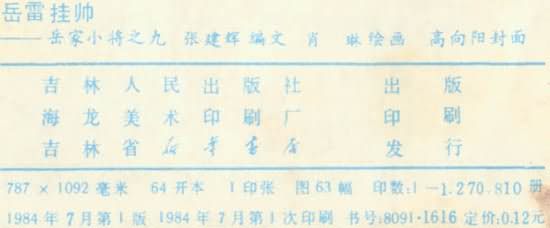 岳雷挂帅
——岳家小将之九 张建辉编文 肖 琳绘画 高向阳封面
吉林人民出版社 出版
海龙美术印刷厂 印刷
吉林省新华书店 发行
787×1092毫米 64开本 1印张 图63幅 印数:1-1.270.810册
1984年7月第1版 1984年7月第1次印刷 书号:8091·1616 定价:0.12元